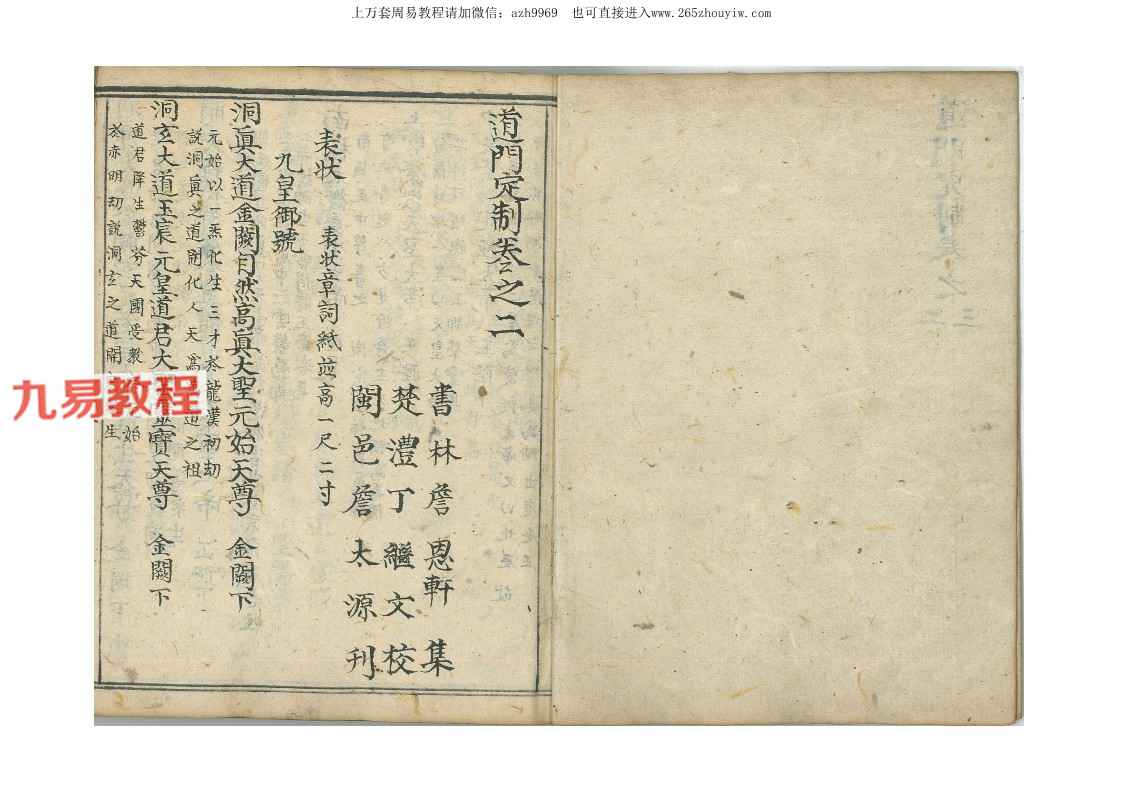 上万套周易教程请加微信：azh9969　也可直接进入www.265zhouyiw.com
道門定制卷之二
書林詹恩軒集
楚澧丁繼文校
閩邑詹太源刊
表狀　表狀章詞紙並高一尺二寸
九皇御號
洞眞大道金闕自然高眞大聖元始天尊　金闕下
元始以一炁化生三才於龍漢初劫
説洞眞之道開化人天爲道之祖
洞玄大道玉宸元皇道君大靈寶天尊　金闕下
道君降生鬱芩天國受教始
於赤明劫説洞玄之道開生
九易教程